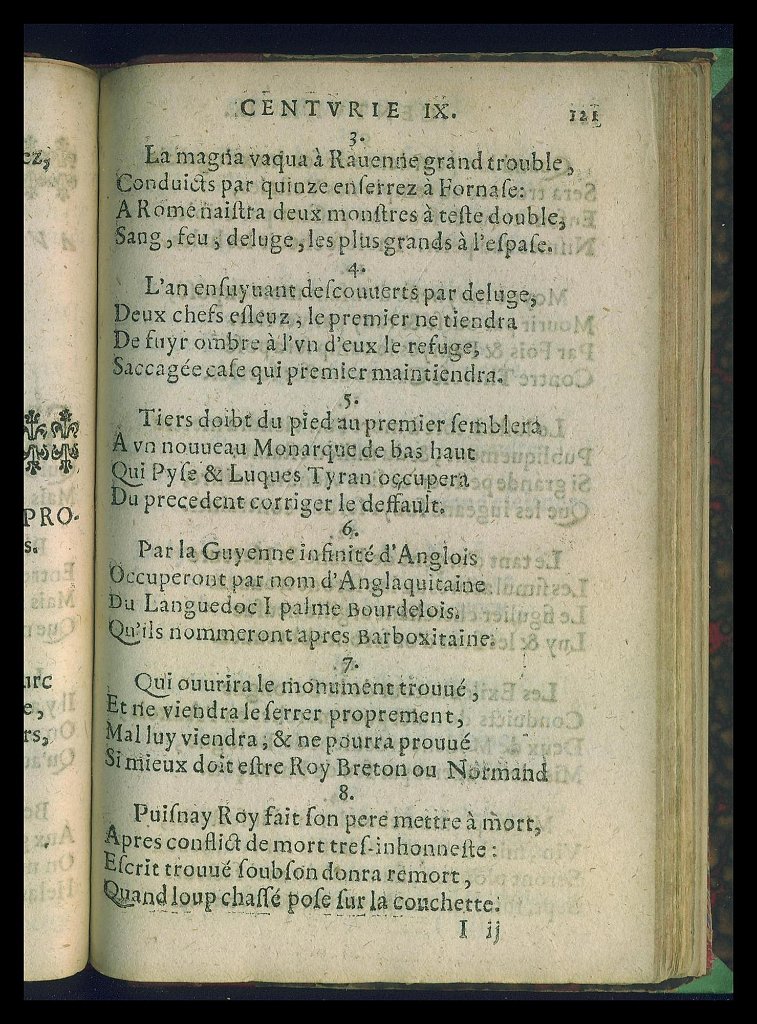 CENTVRIE IX. 121
3.
La magna vaqua à Rauenne grand trouble,
Conduicts par quinze enſerrez à Fornaſe:
A Rome naiſtra deux monſtres à teſte double,
Sang, feu, deluge, les plus grands à l'eſpaſe.
4.
L'an enſuyuant deſcouuerts par deluge,
Deux chefs eſleuz, le premier ne tiendra
De fuyr ombre à l'vn d'eux le refuge,
Saccagée caſe qui premier maintiendra.
5.
Tiers doibt du pied au premier ſemblera
A vn nouueau Monarque de bas haut
Qui Pyſe & Luques Tyran occupera
Du precedent corriger le deffault.
6.
Par la Guyenne infinité d'Anglois
Occuperont par nom d'Anglaquitaine
Du Languedoc I palme Bourdelois.
Qu'ils nommeront apres Barboxitaine.
7.
Qui ouurira le monument trouué,
Et ne viendra le ſerrer proprement,
Mal luy viendra, & ne pourra prouué
Si mieux doit eſtre Roy Breton ou Normand
8.
Puiſnay Roy fait ſon pere mettre à mort,
Apres conflict de mort treſ-inhonneſte:
Eſcrit trouué ſoubſon donra remort,
Quand loup chaſſé poſe ſur la couchette.
I ij
ez,
PRO-
s.
urc
e,
rs,